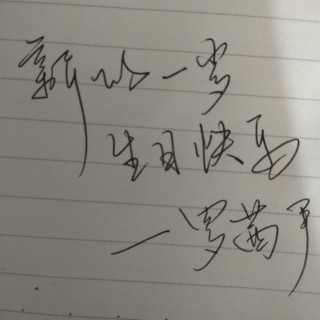 新的一岁
生日快乐
一岁